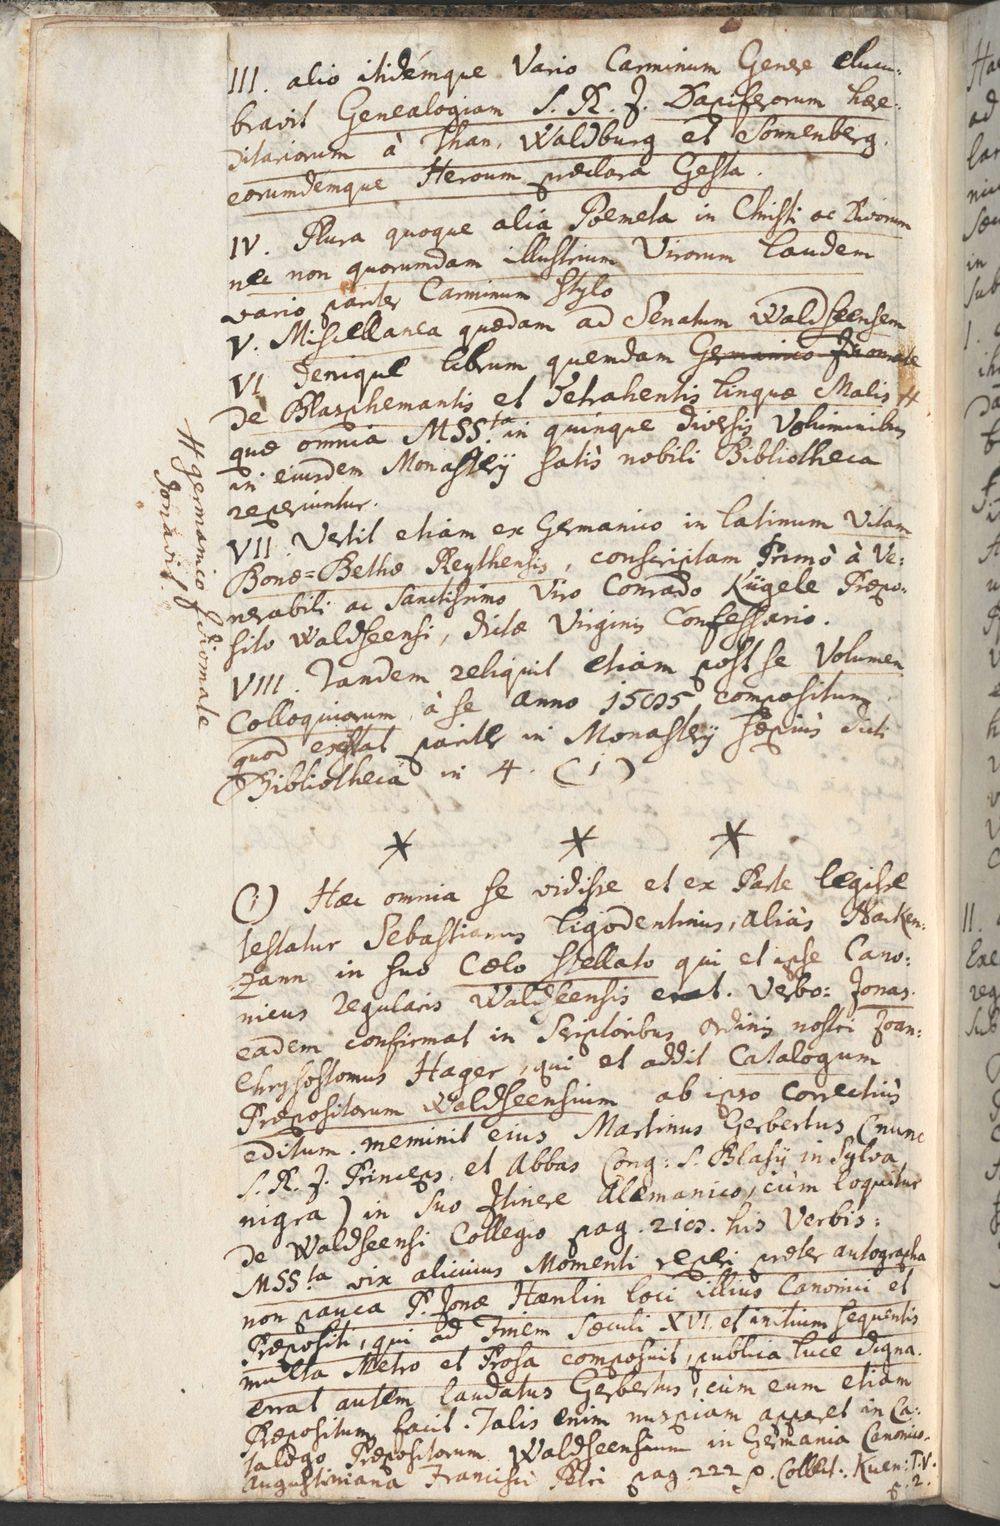 III. alio itidémque Vario Carminum Genere elucu:
bravit Genealogiam S. R. J. Dapiferorum hære:
ditariorum à Than, Waldburg et Sonnenberg.
eorumdémque Heroum præclara Gesta.
IV. Plura quoque alia Poemeta in Christi ac Divorum
nec non quorumdam illustrium Virorum laudem
vario pariter Carminum Stylo
V. Miscellanea quædam ad Senatum Waldseensem
VI Denique librum quemdam Germanico Idiomate
de Blasphemantis et Detrahentis linquæ Malis #
quæ omnia MSS.ta in quinque diversis Voluminibus
in eiusdem Monasterij satis nobili Bibliotheca
reperiuntur.
# germanico Idiomate
donavit.
VII Vertit etiam ex Germanico in latinum Vitam
Bonæ=Bethæ Reythensis, conscriptam Primò à Ve:
nerabili ac Sanctissimo Viro Conrado Kügele Præpo:
sito Waldseensi, dictæ Virginis Confessario.
VIII. Tandem reliquit etiam post se Volumen
Colloquiorum, à se anno 1595 compositum
quod exstat pariter in Monasterij sæpius dicti
Bibliotheca in 4. (i)
* * *
(i) Hæc omnia se vidisse et ex Parte legisse
testatur Sebastianus Ligodentinus, aliàs Hacken:
zann in suo Cœlo stellato qui et ipse Cano:
nicus regularis Waldseensis erat. Verbo: Jonas.
eadem confirmat in Scriptoribus ordinis nostri Joan:
Chrysostomus Hager, qui et addit Catalogum
Præpositorum Waldseensium ab ipso correctiùs
editum. meminit eius Martinus Gerbertus (nunc
S. R. J. Princeps, et Abbas Cong: S. Blasij in Sylva
nigra) in suo Itinere Alemanico, cùm loquitur
de Waldseensi Collegio pag. 219. his Verbis:
MSS.ta vix alicuius Momenti reperi præter autographa
non pauca P. Jonæ Hænlin loci illius Canonici et
Præpositi, qui ad Finem Sæculi XVI. et initium sequentis
multa Metro et Prosa composuit, publica luce digna.
errat autem laudatus Gerbertus, cùm eum etiam
Præpositum facit. Talis enim nuspiam apparet in Ca:
talogo Præpositorum Waldseensium in Germania Canonico-
Augustiniana Francisci Petri pag 222 Collect: Kuen: T. V.
p. 2.